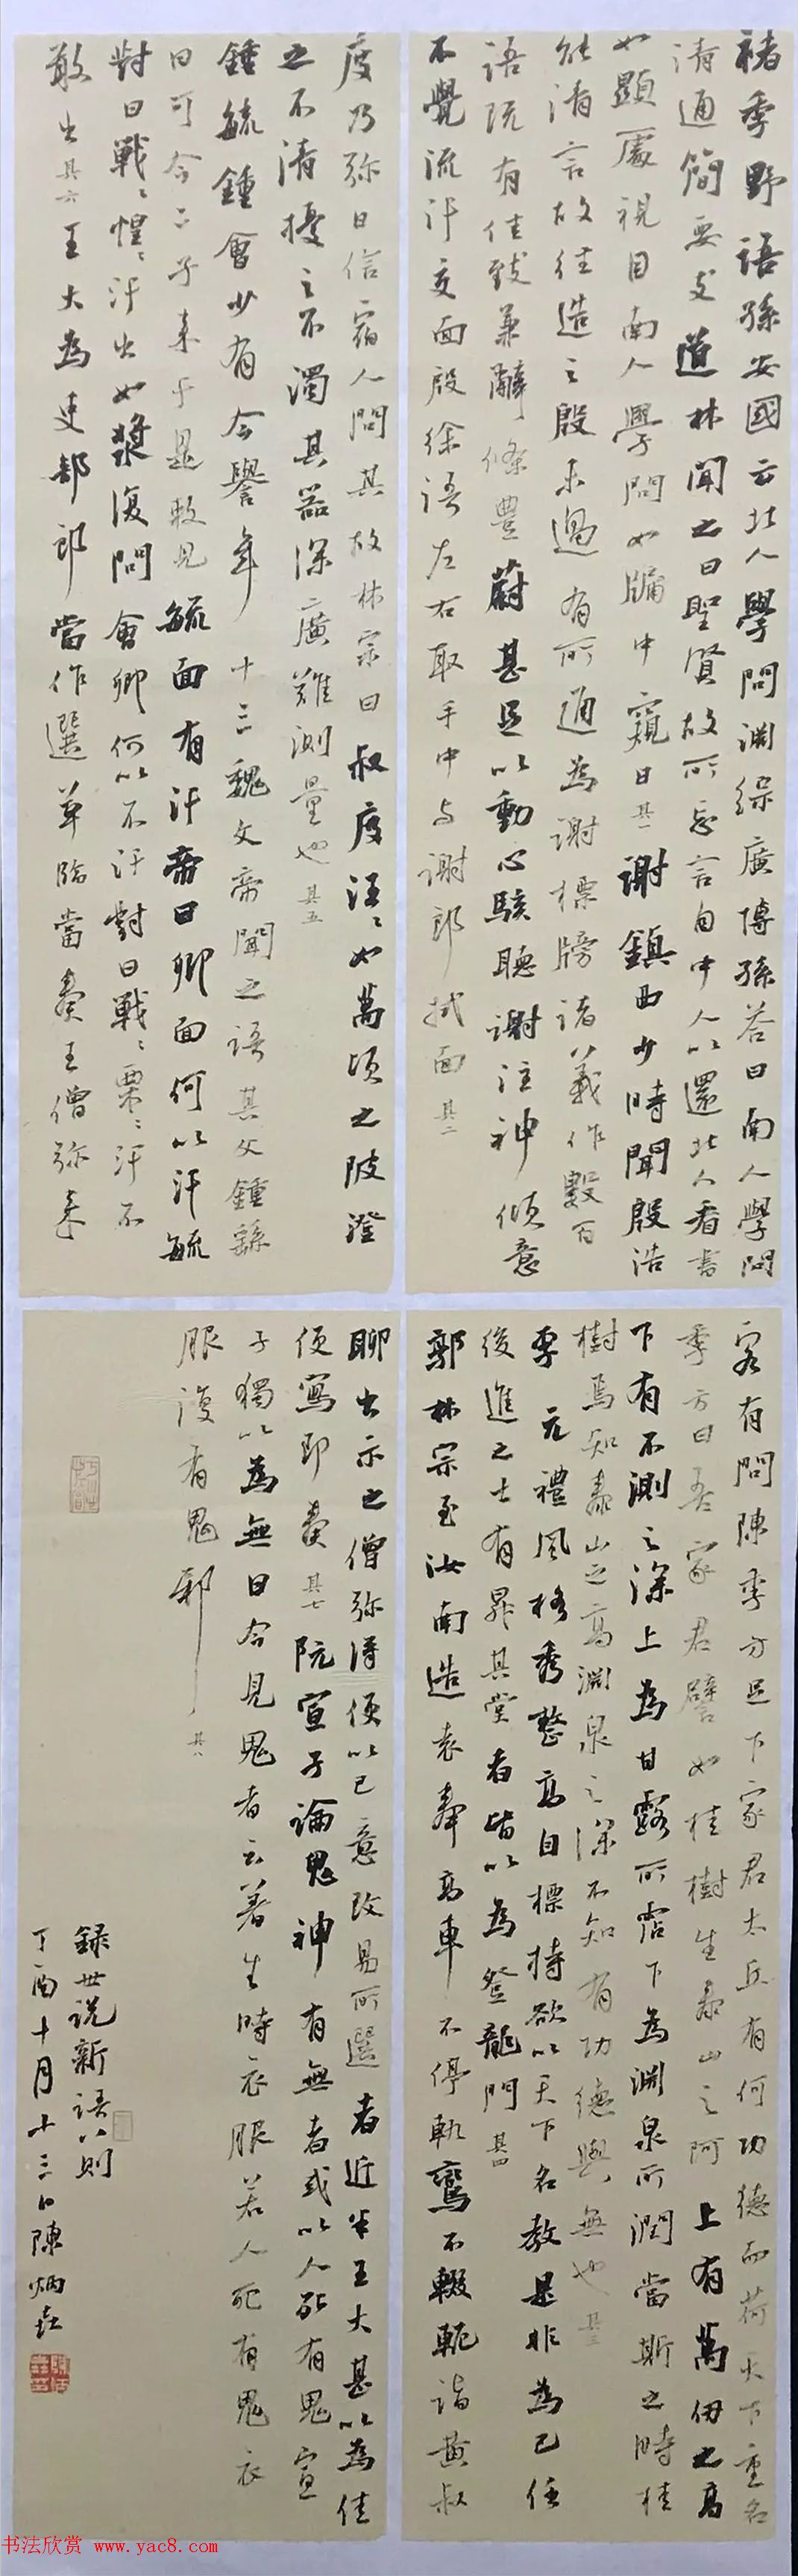 褚季野語孫安國云北人學問淵綜廣博孫答曰南人學問
清通簡要支道林聞之曰聖賢故所忘言自中人以還北人看書
如顯處視月南人學問如牖中窺日其一謝鎮西少時聞殷浩
能清言故往造之殷未過有所通為謝標牓諸義作數百
語既有佳致兼辭條豐蔚甚足以動心駭聽謝注神傾意
不覺流汗交面殷徐語左右取手巾与謝郎拭面其二
客有問陳季方足下家君太丘有何功德而荷天下重名
季方曰吾家君譬如桂樹生泰山之阿上有萬仞之高
下有不測之深上為甘露所霑下為淵泉所潤當斯之時桂
樹焉知泰山之高淵泉之深不知有功德與無也其三
李元禮風格秀整高自標持欲以天下名教是非為己任
後進之士有昇其堂者皆以為登龍門其四
郭林宗至汝南造袁奉高車不停軌鸞不輟軛詣黃叔
度乃弥日信宿人問其故林宗曰叔度汪〻如萬頃之陂澄
之不清擾之不濁其器深廣難測量也其五
鍾毓鍾會少有令譽年十三魏文帝聞之語其父鍾繇
曰可令二子来于是敕見毓面有汗帝曰卿面何以汗毓
對曰戰〻惶〻汗出如漿復問會卿何以不汗對曰戰〻栗〻汗不
敢出其六王大為吏部郎當作選草臨當奏王僧弥来
聊出示之僧弥得便以己意改易所選者近半王大甚以為佳
便寫即奏其七阮宣子論鬼神有無者或以人死有鬼宣
子獨以為無曰今見鬼者云著生時衣服若人死有鬼衣
服復有鬼邪其八
録世说新語八則
丁酉十月十三日陳炳垚
书法欣赏 www.yac8.com